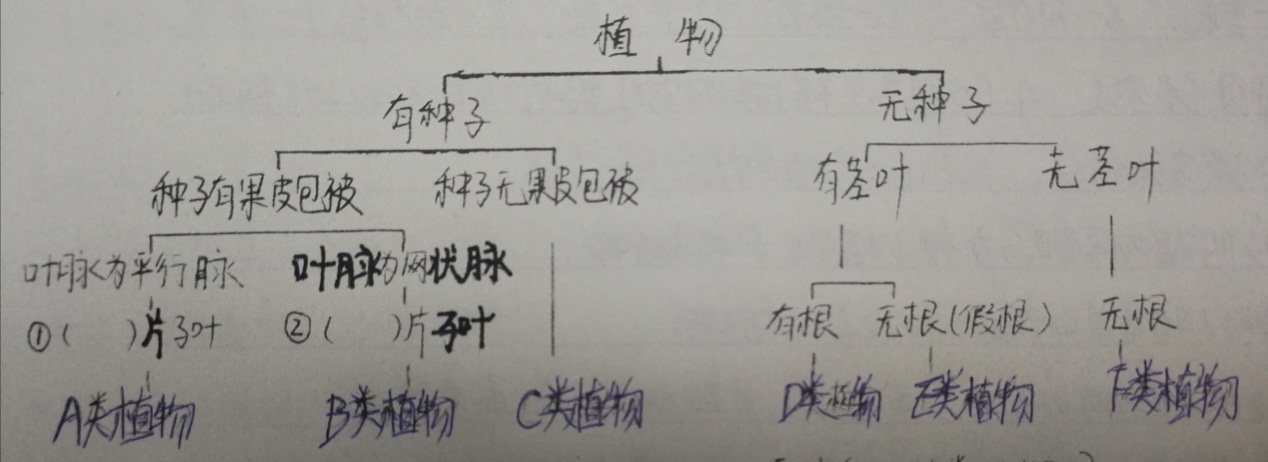 植物
有种子 无种子
种子有果皮包被 种子无果皮包被 有茎叶 无茎叶
叶脉为平行脉 叶脉为网状脉
①( )片子叶 ②( )片子叶 有根 无根(假根) 无根
A类植物 B类植物 C类植物 D类植物 E类植物 F类植物